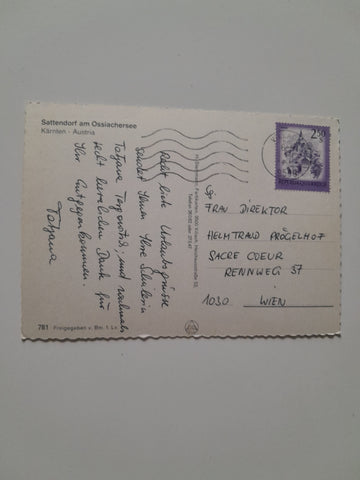 Sattendorf am Ossiachersee
Kärnten - Austria
Recht liebe Urlaubsgrüsse
sendet Ihnen Ihre Schülerin
Tatjana und nochmals
sehr herzlichen Dank für
Ihr Entgegenkommen.
Tatjana
781 Freigegeben v. Bm. f. Lv
2.50
REPUBLIK ÖSTERREICH
FRAU DIREKTOR
HELMTRAUD PRÖGELHOF
SACRE COEUR
RENNWEG 37
1030 WIEN